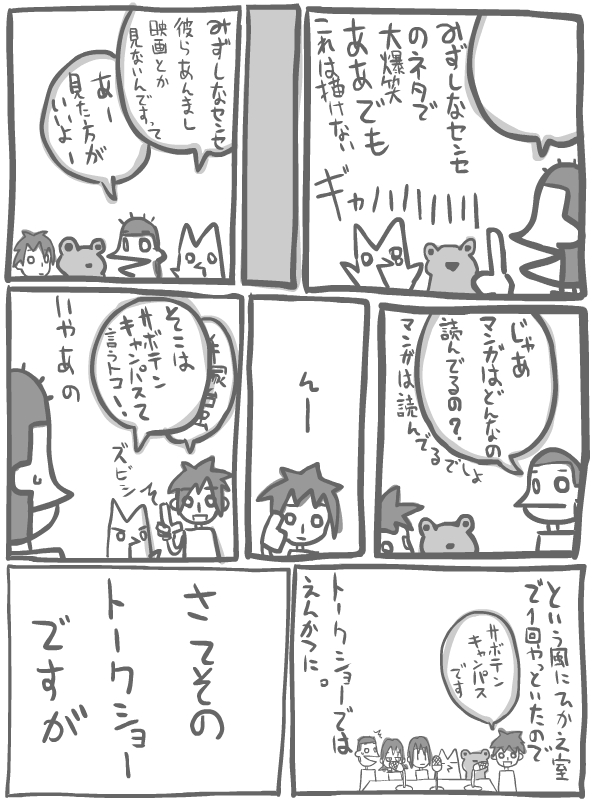 みずしなセンセ
のネタで
大爆笑
ああでも
これは描けない
ギャハハハハハ
みずしなセンセ
彼らあんまし
映画とか
見ないんですって
あー
見た方が
いいよー
じゃあ
マンガはどんなの
読んでるの?
マンガは読んでるでしょ
んー
そこは
サボテン
キャンパスて
言うトコー!
ズビシ
いやあの
という風にひかえ室
で1回やっといたので
サボテン
キャンパス
です
トークショーでは
えんかつに。
さてその
トークショー
ですが